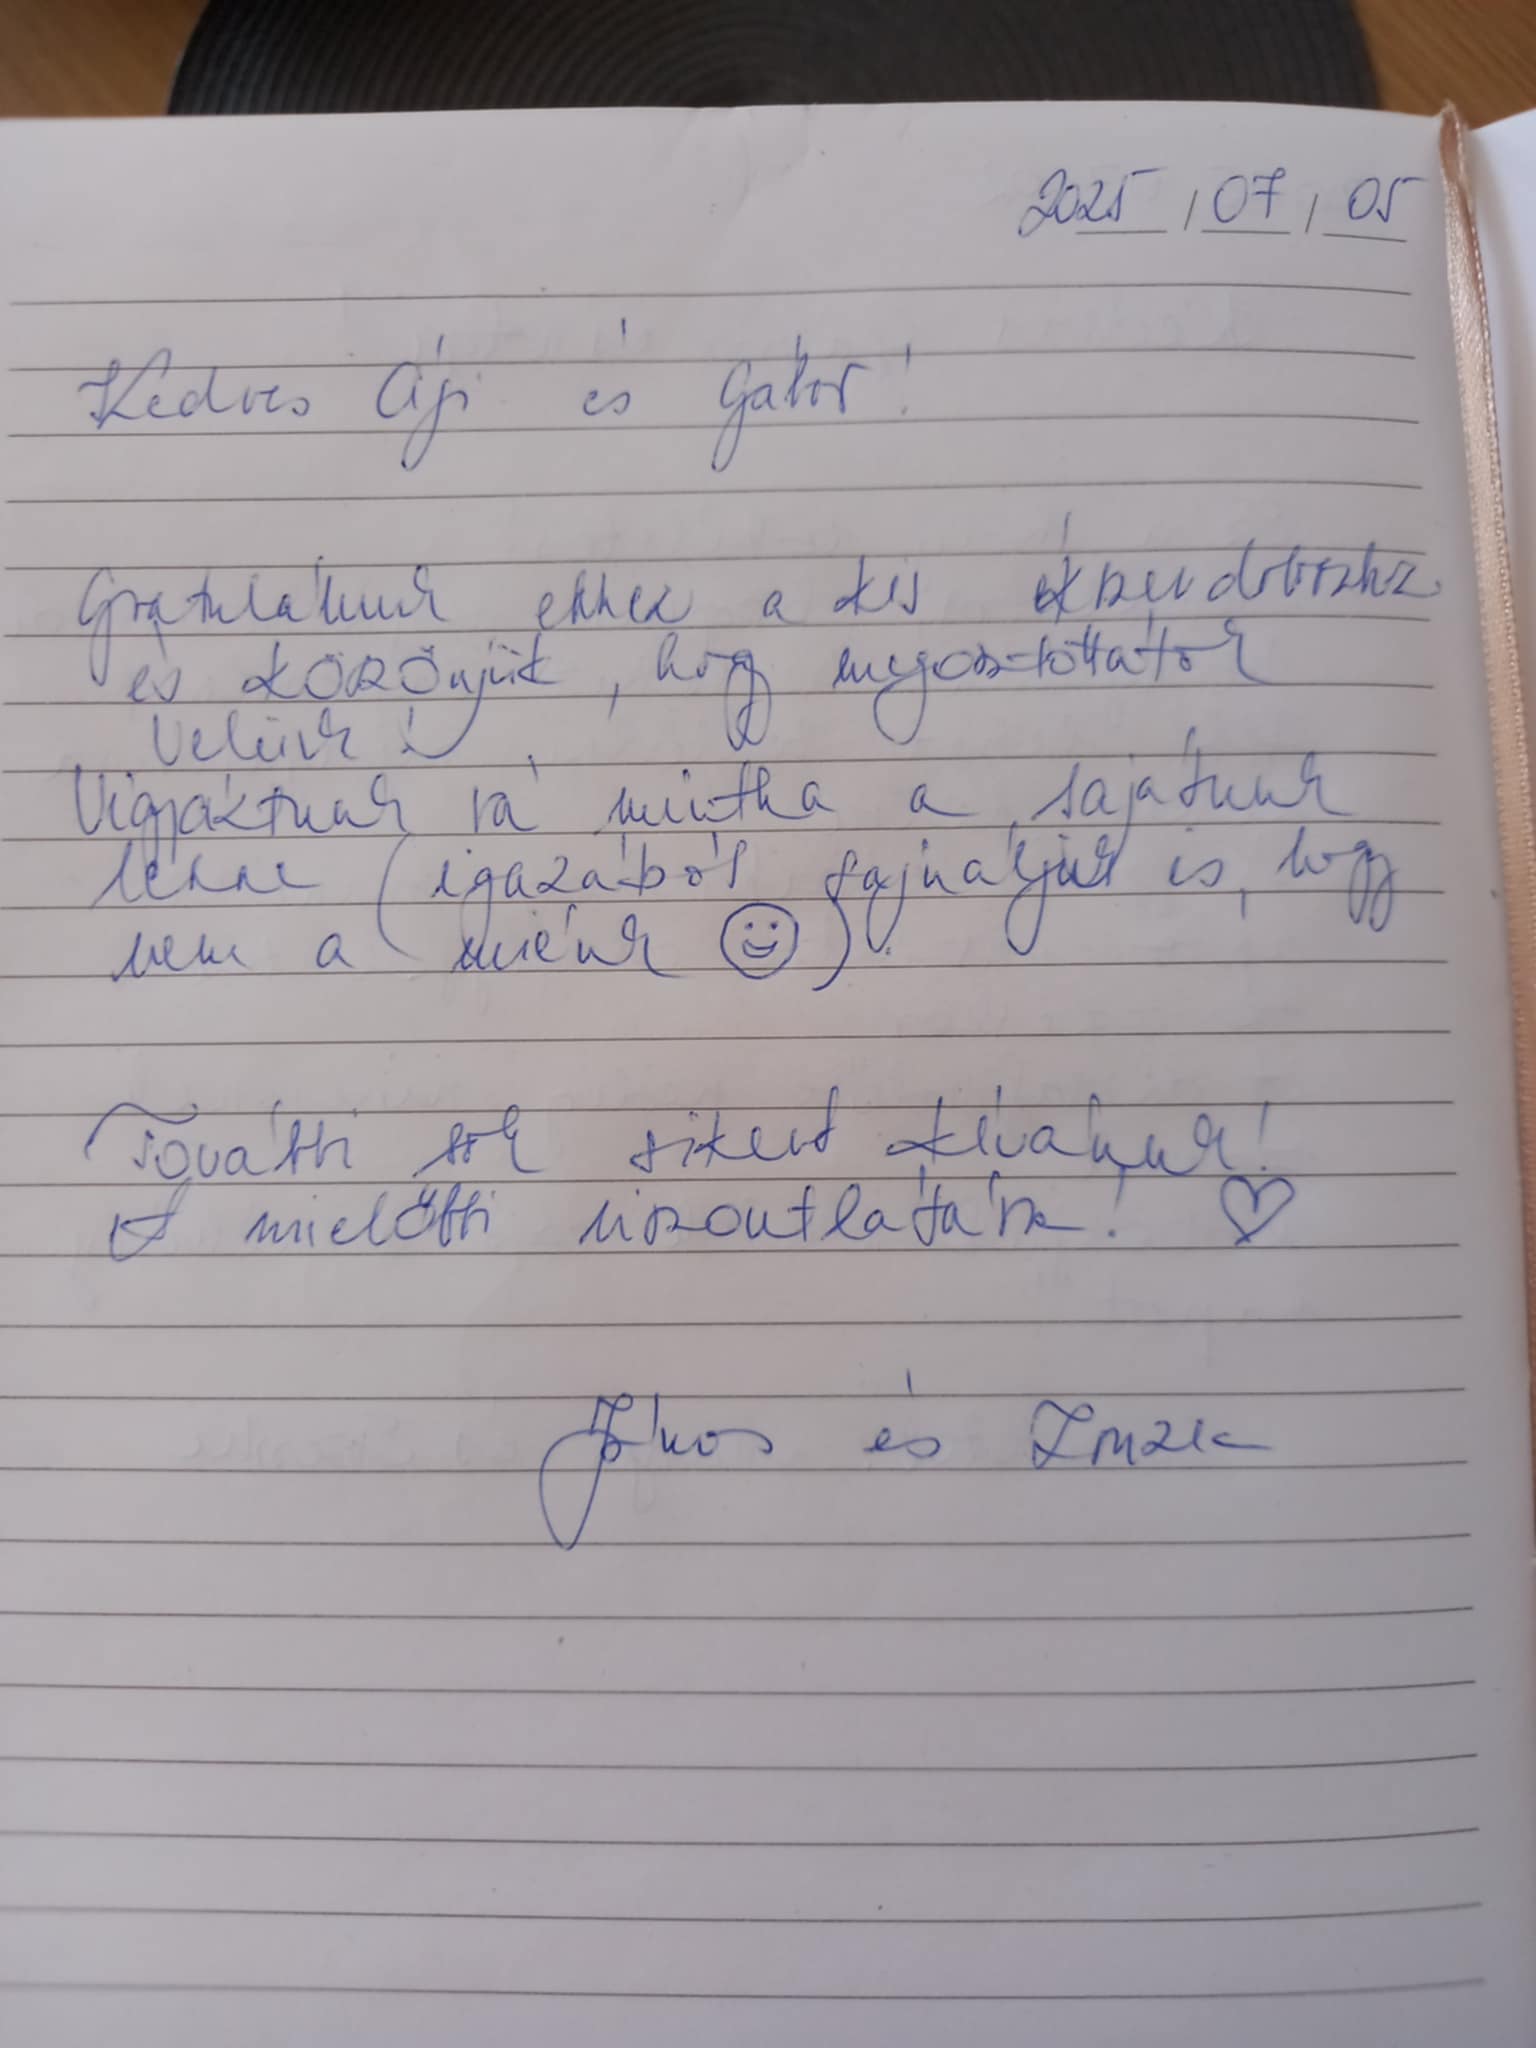 2025/07/05
Kedves Ági és Gábor!
Gratulálunk ehhez a kis ékszerdobozhoz
és köszönjük, hogy megosztottátok
Velünk!
Vigyáztunk rá mintha a sajátunk
lenne (igazából sajnáljuk is, hogy
nem a miénk ☺).
További sok sikert kívánunk!
A mielőbbi viszontlátásra! ♡
János és Zsuzsa